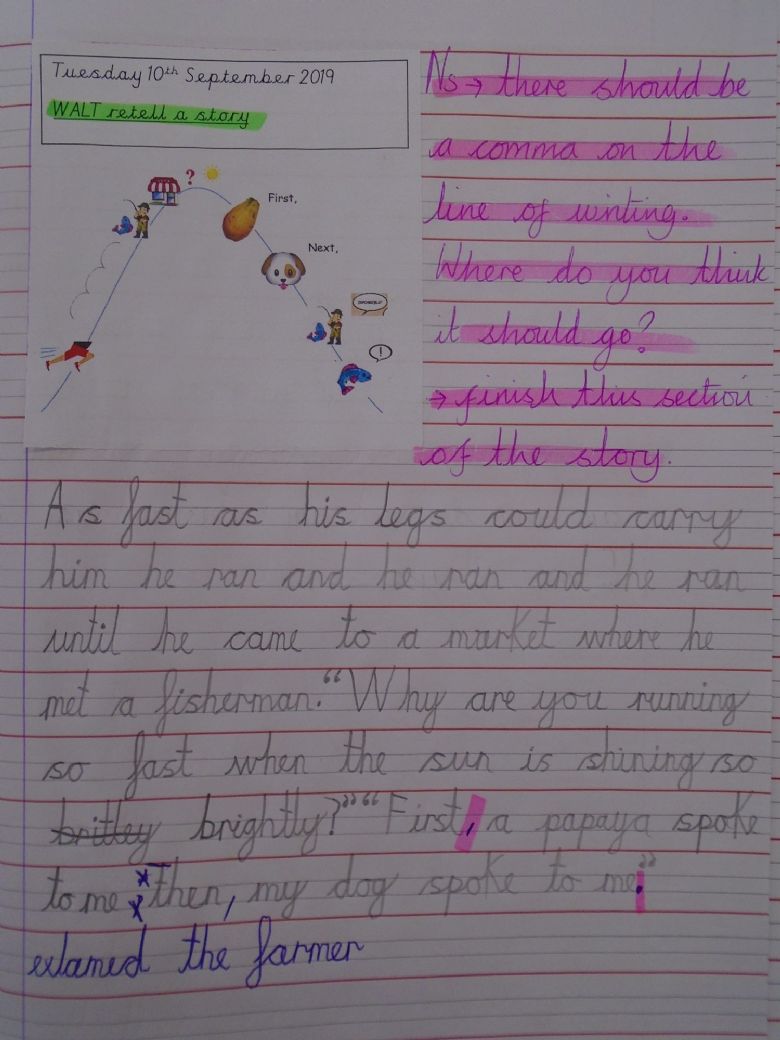 Tuesday 10th September 2019
WALT retell a story
?
First,
Next,
!
Ns → there should be
a comma on the
line of writing.
Where do you think
it should go?
→ finish this section
of the story.
As fast as his legs could carry
him he ran and he ran and he ran
until he came to a market where he
met a fisherman. “Why are you running
so fast when the sun is shining so
britley brightly?” “First, a papaya spoke
to me. Then, my dog spoke to me.”
exlamed the farmer